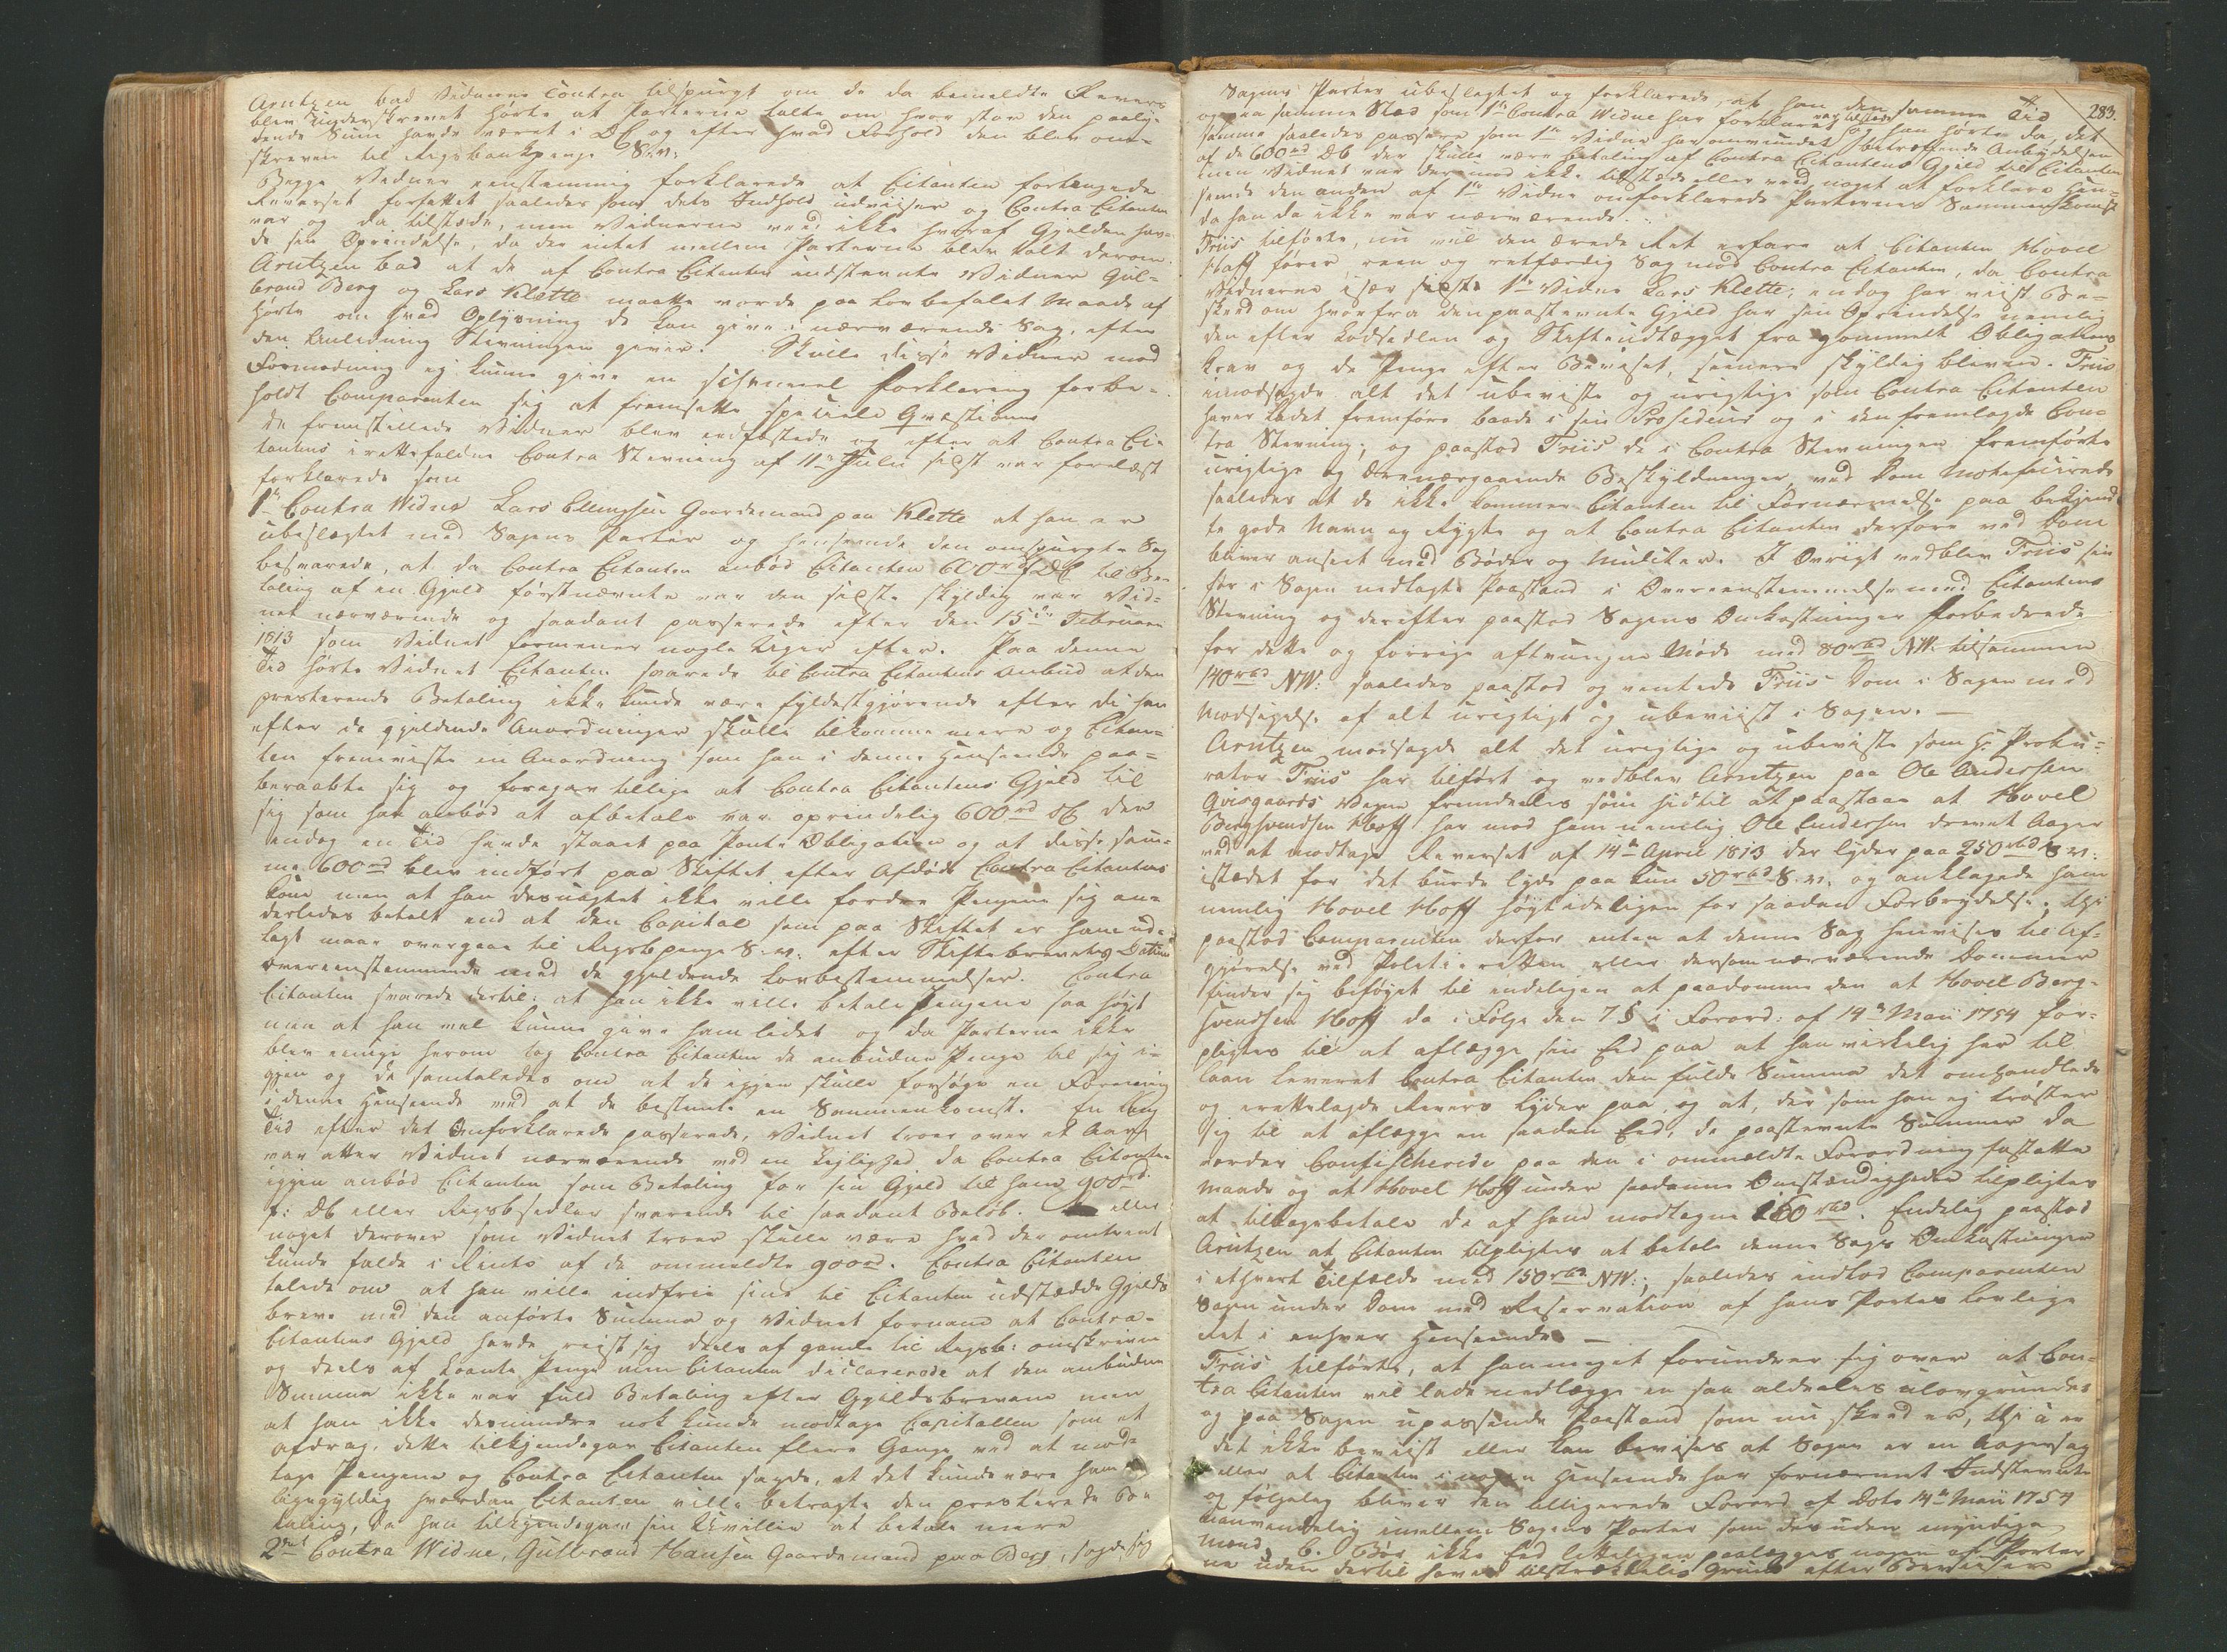 Arntzen bad Vidnerne Contra tilspurgt om de da bemeldte Revers
blev underskrevet hørte at Parterne talte om hvor stor den paalydende
dende Sum havde været i DC og efter hvad Forhold den blev om-
skreven til Rigsbankpenge S.v.
Begge Vidner eenstemmig forklarede at Citanten forlangede
Reverset forfattet saaledes som dets Indhold udviiser og Contra Citanten
var og da tilstæde, men Vidnerne veed ikke hvoraf Gjelden hav-
de sin Oprindelse, da der intet mellem Parterne blev talt derom.
Arntzen bad at de af Contra Citanten indstevnte Vidner Gul-
brand Berg og Lars Klette maatte vorde paa lovbefalet Maade af-
hørte om hvad Oplysning de kan give i nærværende Sag, efter
den Anledning Stevningen giver. Skulle disse Vidner mod
Formodning ej kunne give en  Forklaring forbe-
holdt Comparenten sig at fremsætte specielle Qvæstioner
De fremstillede Vidner blev eedfæstede og efter at Contra Ci-
tantens i rettefaldne Contra Stevning af 11te Julii sidst var forelæst
forklarede som
1te Contra Vidne Lars Ellingsen Gaardemand paa Klette at han er
ubeslægtet med Sagens Parter og henseende den omspurgte Sag
besvarede, at da Contra Citanten anbød Citanten 600 rd DC til Be-
taling af en Gjeld førstnævnte var den sidste skyldig var Vid-
net nærværende og saadant passerede efter den 15de Februari
1813 som Vidnet formener nogle Uger efter. Paa denne
Tid hørte Vidnet Citanten svarede til Contra Citantens Anbud at den
presterende Betaling ikke kunde være fyldestgjørende efter di han
efter de gjeldende Anordninger skulle tilkomme mere og Citan-
ten fremviiste en Anordning som han i denne Henseende paa-
beraabte sig og foregav tillige at Contra Citantens Gjeld til
sig som han anbød at afbetale var oprindelig 600 rd DC der
endog en Tid havde staaet paa Pante Obligation og at disse sam-
me 600 rd blev indført paa Skiftet efter Afdøde Contra Citantens
Kone men at han desuagtet ikke ville fordre Pengene sig an-
derledes betalt end at den Capital som paa Skiftet er ham ud-
lagt maae overgaae til Rigsbpenge S.v. efter Skiftebrevets Datum
overeenstemmende med de gjeldende Lovbestemmelser. Contra
Citanten svarede dertil: at han ikke ville betale Pengene saa høyt
men at han vel kunne give ham lidet og da Parterne ikke
blev enige herom tog Contra Citanten de anbudne Penge til sig i-
gjen og de samtaledes om at de igjen skulle forsøge en Forening
i denne Henseende ved at de bestemte en Sammenkomst. En lang
Tid efter det Omforklarede passerede, Vidnet troer over et Aar,
var atter Vidnet nærværende ved en Leylighed da Contra Citanten
igjen anbød Citanten som Betaling for sin Gjeld til ham 900 rd.
f: DC eller Rigsbsedler svarende til saadant Beløb. eller
noget derover som Vidnet troer skulle være hvad der omtrent
kunde falde i Rente af de ommeldte 900 rd. Contra Citanten
talede om at han ville indfrie sine til Citanten udstædde Gjelds-
breve med den anførte Summa og Vidnet fornam at Contra-
Citantens Gjeld havde reist sig deels af gamle til Rigsb: omskrevne
og deels af laante Penge men Citanten declarerede at den anbudne
Summa ikke var fuld Betaling efter Gjeldsbrevene men
at han ikke desmindre nok kunde modtage Capitallen som et
afdrag. dette tilkjendegav Citanten flere Gange ved at mod-
tage Pengene og Contra Citanten sagde, at det kunde være ham
ligegyldig hvordan Citanten ville betragte den presterede Be-
taling, da han tilkjendegav sin Uvillie at betale mere
2det Contra Vidne, Gulbrand Hansen Gaardemand paa Berg, sagde sig
283.
Sagens Parter ubeslegtet og forklarede, at han den samme Tid
og paa samme Stæd som 1te Contra Vidne har forklaret var tilstæde
samme saaledes passere som 1te Vidne har omvundet og han hørte da, det
af de 600 rd DC der skulle være Betaling af Contra Citantens Gjeld til Citanten
men Vidnet var derimod ikke tilstæde eller veed noget at forklare hen-
seende den anden af 1te Vidne omforklarede Parternes Sammenkomst
da han da ikke var nærværende.
Friis tilførte, nu vil den ærede Ret erfare at Citanten Hovel
Hoff fører, reen og retfærdig Sag mod Contra Citanten, da Contra
Vidnerne især sidste 1te Vidne Lars Klette; endog har viist Be-
skeed om hvorfra den paastevnte Gjeld har sin Oprindelse nemlig
den efter Lodsedlen og Skifteudlægget fra gammelt Obligations
Krav og de Penge efter Beviset, senere skyldig bleven. Friis
imodsagde alt det ubeviste og urigtige som Contra Citanten
haver ladet fremføre baade i sin Prosedeur og i den fremlagde Con-
tra Stevning, og paastod Friis de i Contra Stevningen fremførte
urigtige og Ærenærgaaende Beskyldninger, ved Dom Mortificerede
saaledes at de ikke kommer Citanten til Fornærmelse paa bekjend-
te gode Navn og Rygte og at Contra Citanten derfore ved Dom
bliver anseet med Bøder og Mulcter. I Øvrigt vedblev Friis sin
før i Sagen nedlagte Paastand i Overeenstemmelse med Citantens
Stevning og derefter paastod Sagens Omkostninger forbedrede
for dette og forrige aftvungne Møde med 80 rbd NV: tilsammen
140 rbd NV: saaledes paastod og ventede Friis Dom i Sagen med
Modsigelse af alt urigtigt og ubeviist i Sagen. —
Arntzen modsagde alt det urigtige og ubeviste som Hr Proku-
rator Friis har tilført og vedblev Arntzen paa Ole Andersen
Qvisgaards Vegne fremdeeles som hidtil at paastaae at Hovel
Bergsvendsen Hoff har mod ham nemlig Ole Andersen drevet Aager
ved at modtage Reverset af 14de April 1813 der lyder paa 250 rbd S.v:
istædet for det burde lyde paa kun 50 rbd S.v. og anklagede ham
nemlig Hovel Hoff høytideligen for saadan Forbrydelse, thi
paastod Comparenten derfor enten at denne Sag henvises til Af-
gjørelse ved Politieretten eller dersom nærværende Dommer
finder sig beføyet til endeligen at paadømme den at Hovel Berg-
svendsen Hoff da i Følge den 7 § i Forord: af 14de Maii 1754 for-
pligtes til at aflægge sin Eed paa at han virkelig har til
laan leveret Contra Citanten den fulde Summa det omhandlede
og irettelagde Revers lyder paa, og at, dersom han ej trøster
sig til at aflægge en saadan Eed, de paastevnte Summer da
vorder Confischerede paa den i ommeldte Forordning fastsatte
Maade og at Hovel Hoff under saadanne Omstændigheder tilpligtes
at tilbagebetale de af ham modtagne rbd. Endelig paastod
Arntzen at Citanten tilpligtes at betale denne Sags Omkostninger
i ethvert Tilfælde med 150 rbd NV:, saaledes indlod Comparenten
Sagen under Dom med Reservation af hans Partes lovlige
Ret i enhver Henseende. —
Friis tilførte, at han meget forundrer sig over at Con-
tra Citanten vil lade nedlægge en saa aldeeles ulovgrundet
og paa Sagen upassende Paastand som nu skeed er, thi a er
det ikke beviist eller kan bevises at Sagen er en Aagersag
eller at Citanten i nogen Henseende har fornærmet Indstevnte
og følgelig bliver den allegerede Forord af Dato 14de Maii 1754
uanvendelig imellem Sagens Parter som desuden myndige
Mænd, b. Bør ikke Eed letteligen paalægges nogen af Parter
ne uden dertil haves tilstrækkelig Grund efter Beviser